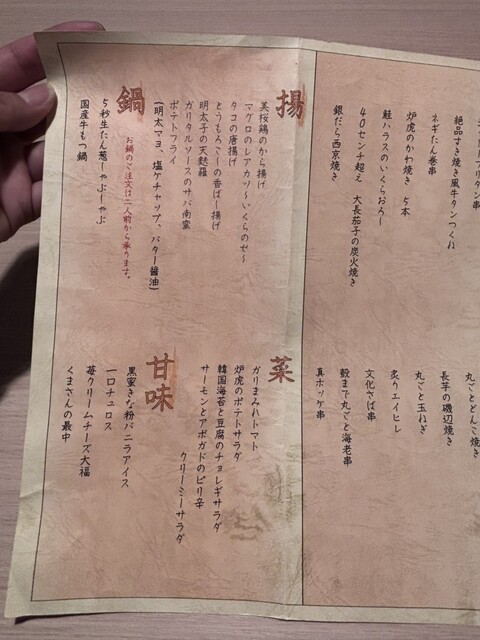 絶品すき焼き風牛タンつくね
ネギたん巻串
炉虎のかわ焼き 5本
鮭ハラスのいくらおろし
40センチ超え 大長茄子の炭火焼き
銀だら西京焼き
丸ごとどんこ焼き
長芋の磯辺焼き
丸ごと玉ねぎ
炙りエイヒレ
文化さば串
殻まで丸ごと海老串
真ホッケ串
揚
美桜鶏のから揚げ
マグロのレアカツ〜いくらのせ〜
タコの唐揚げ
とうもろこしの香ばし揚げ
明太子の天麩羅
ガリタルソースのサバ南蛮
ポテトフライ
(明太マヨ、塩ケチャップ、バター醤油)
鍋
お鍋のご注文は二人前から承ります。
5秒生たん葱しゃぶしゃぶ
国産牛もつ鍋
菜
ガリまみれトマト
炉虎のポテトサラダ
韓国海苔と豆腐のチョレギサラダ
サーモンとアボガドのピリ辛
クリーミーサラダ
甘味
黒蜜きな粉バニラアイス
一口チュロス
苺クリームチーズ大福
くまさんの最中